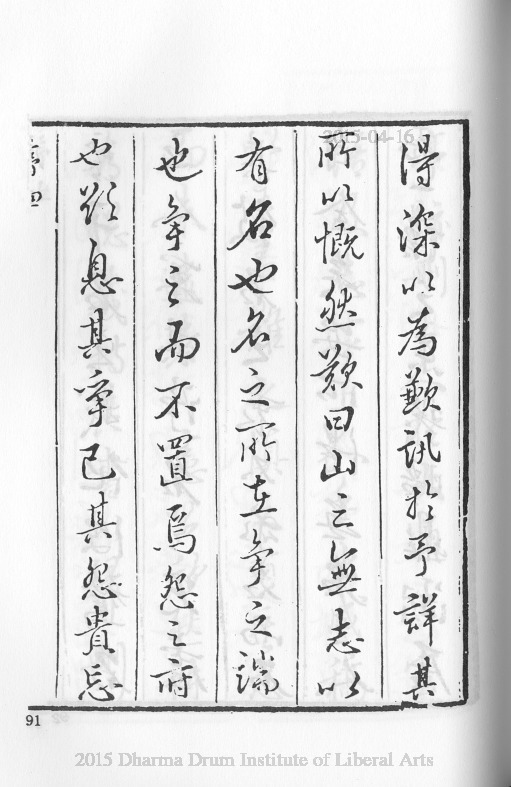 得深以為歉訊於予詳其
所以慨然歎曰山之無志以
有名也名之所在爭之端
也爭之而不置焉怨之府
也欲息其爭已其怨貴忘
序四
91
2015-04-16
2015 Dharma Drum Institute of Liberal Arts